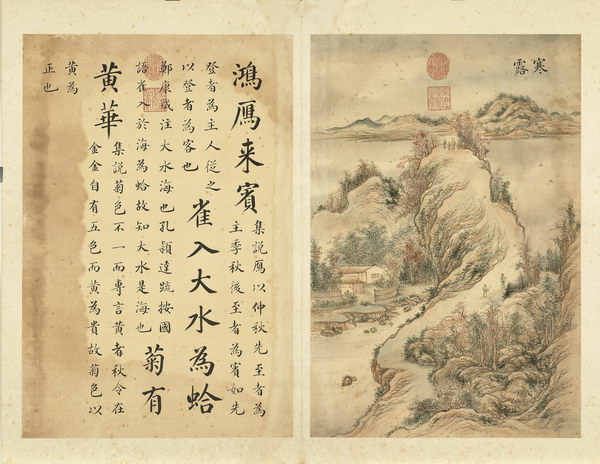 寒
露
鴻鴈来賓
集說鴈以仲秋先至者為
主季秋後至者為賓如先
登者為主人從之
以登者為客也
雀入大水為蛤
鄭康成注大水海也孔穎達疏按國
語雀入於海為蛤故知大水是海也
菊有
黄華
集說菊色不一而專言黄者秋令在
金金自有五色而黄為貴故菊色以
黄為
正也